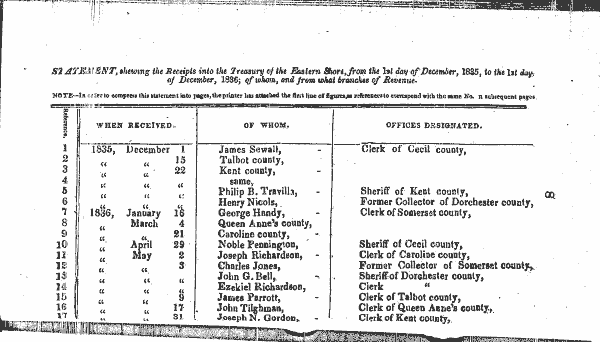 STATEMENT, shewing the Receipts into the Treasury of the Eastern Shore, from the 1st day of December, 1835, to the 1st day
of December, 1836; of whom, and from what branches of Revenue.
NOTE--In order to compress this statement into pages, the printer has attached the first line of figures, as references to correspond with the same No. n subsequent pages
Reference. WHEN RECEIVED. OF WHOM, OFFICES DESIGNATED.
1 1835, December 1 James Sewall, - Clerk of Cecil county,
2 “ “ 15 Talbot county,
3 “ “ 22 Kent county, -
4 “ “ same,
5 “ “ “ Philip B. Travilla, - Sheriff of Kent county,
6 “ “ “ Henry Nicols, Former Collector of Dorchester county, 8
7 1836, January 16 George Handy, - Clerk of Somerset county,
8 “ March 4 Queen Anne's county,
9 “ “ 21 Caroline county, -
10 “ April 29 Noble Pennington, Sheriff of Cecil county,
11 “ May 2 Joseph Richardson, - Clerk of Caroline county,
12 “ “ 3 Charles Jones, Former Collector of Somerset county,
13 “ “ “ John G. Bell, - Sheriff of Dorchester county,
14 “ “ “ Ezekiel Richardson, Clerk “
15 “ “ 9 James Parrott, - Clerk of Talbot county,
16 “ “ 17 John Tilghman, Clerk of Queen Anne's county,
17 “ “ 31 Joseph N. Gordon, - Clerk of Kent county,